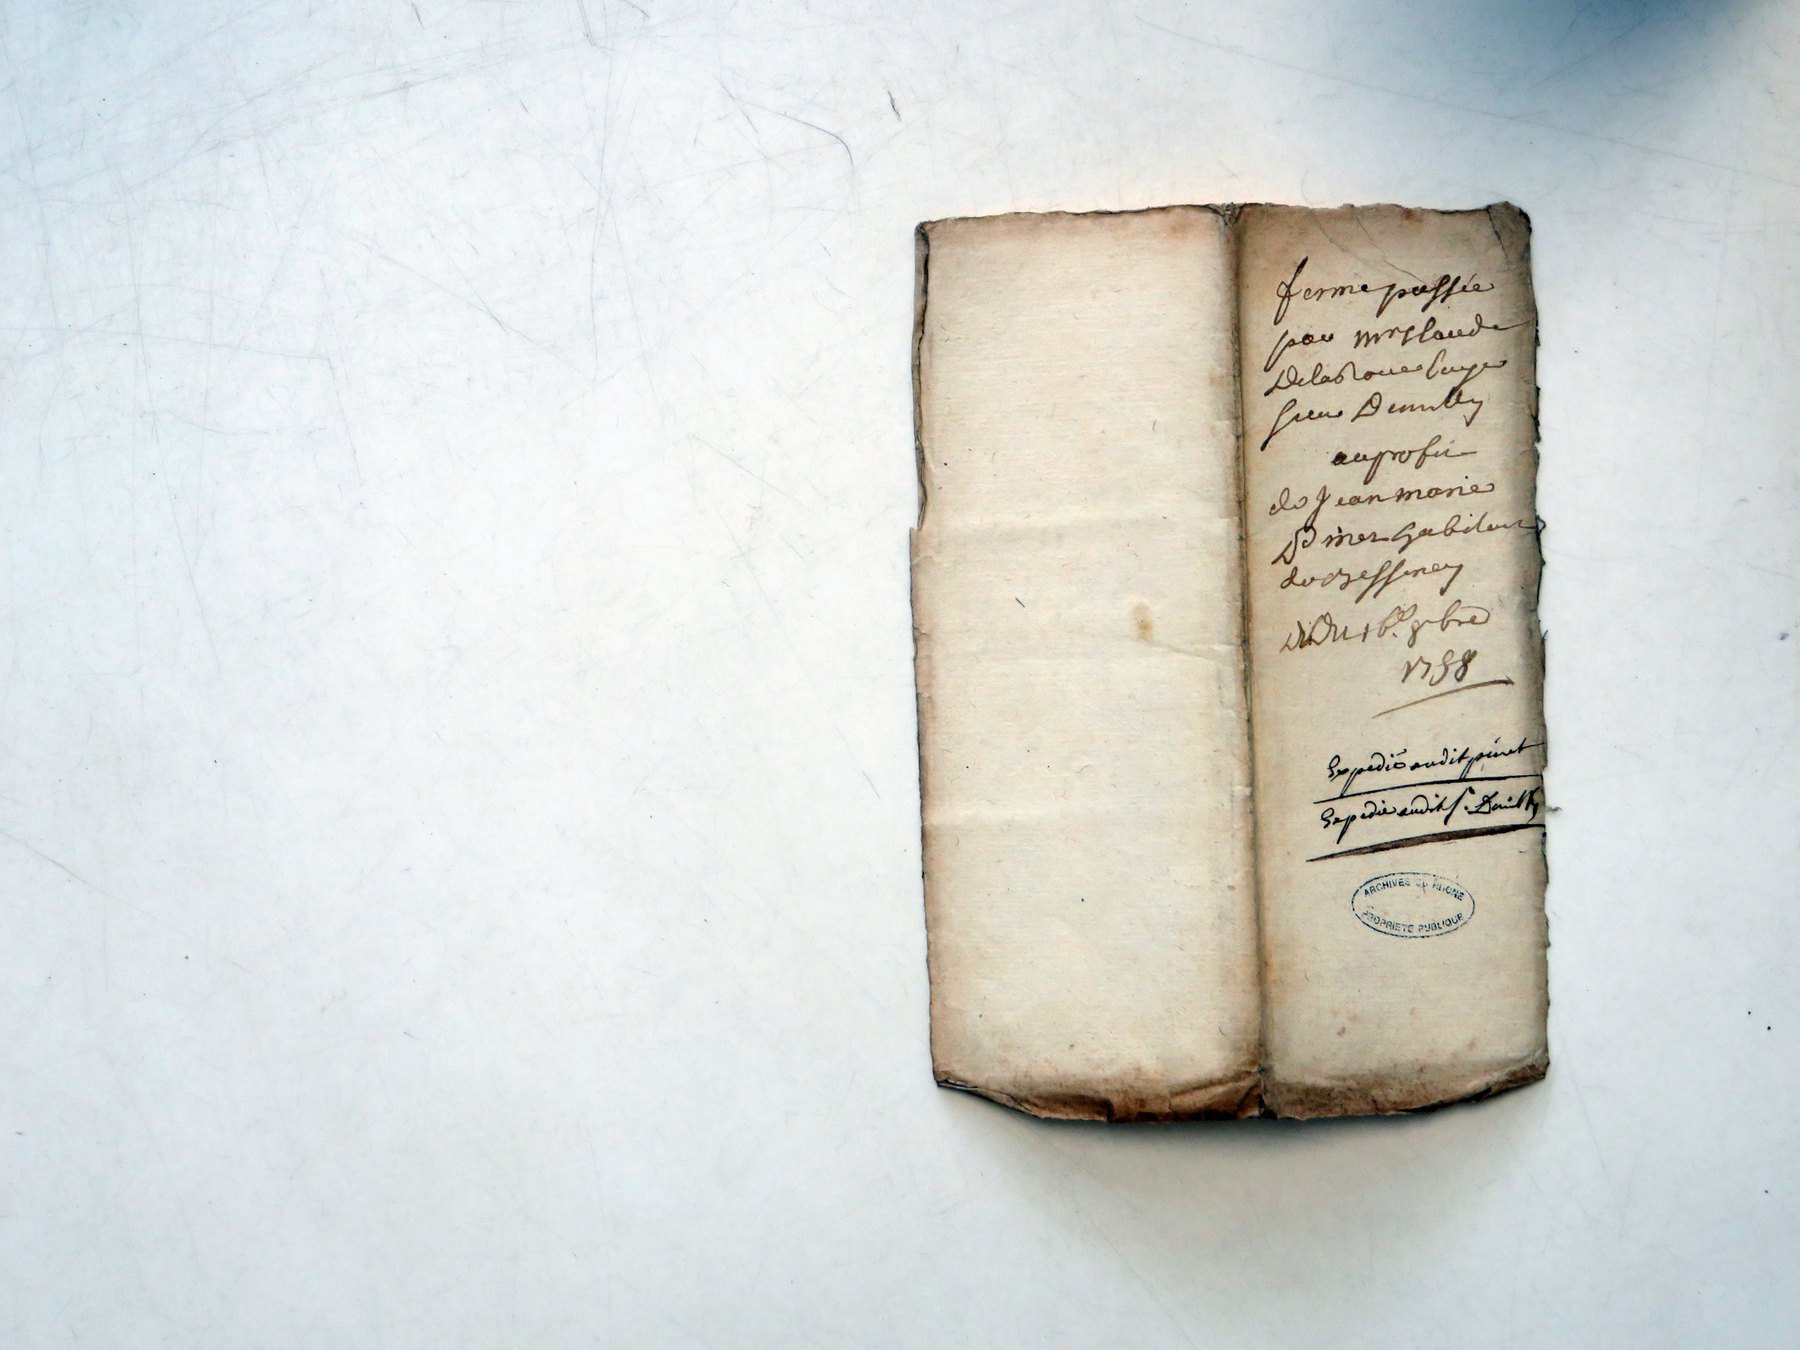 ferme passée
par mr Claude
Delaroue
sieur Demilly
au profit
de Jean marie
Pinet habitant
de Bessenay
Du 16e 9bre
1758
Expedié audit pinet
Expedié audit S. Demilly
ARCHIVES DU RHONE
PROPRIETE PUBLIQUE